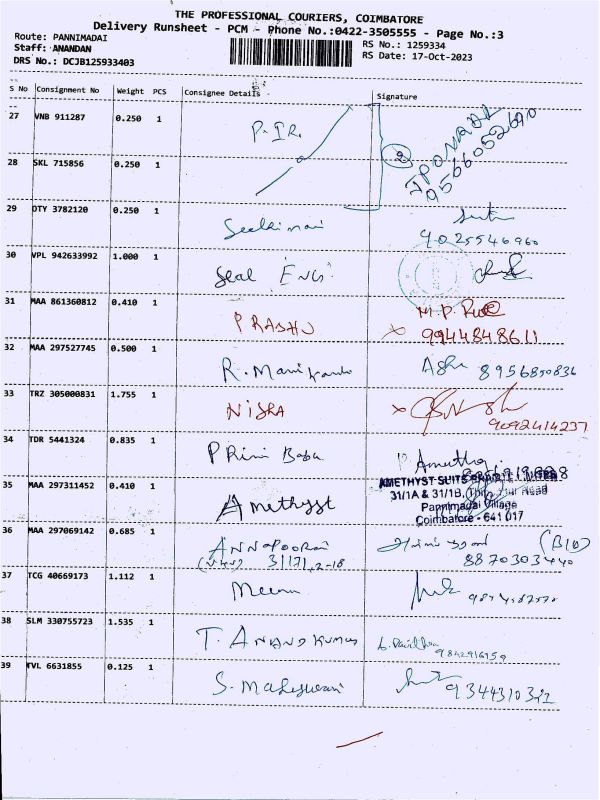 THE PROFESSIONAL COURIERS, COIMBATORE
Delivery Runsheet - PCM - Phone No.:0422-3505555 - Page No.:3
Route: PANNIMADAI
RS No.: 1259334
Staff: ANANDAN
RS Date: 17-Oct-2023
DRS No.: DCJB125933403
S No Consignment No Weight PCS Consignee Details Signature
27 VNB 911287 0.250 1 P. IR.
2
9566052690
28 SKL 715856 0.250 1
29 OTY 3782120 0.250 1
9025546960
30 VPL 942633992 1.000 1 Seal ENG.
31 MAA 861360812 0.410 1 PRABHU
M.P.
x 9944848611
32 MAA 297527745 0.500 1 R. Manikanda
Asha 8956850836
33 TRZ 305000831 1.755 1 NISHA
x
9092414237
34 TDR 5441324 0.835 1 PRimi Baba
P. Amutha
35 MAA 297311452 0.410 1 Amethyst
AMETHYST SUITS
31/1A & 31/1B,
Pannimadai Village
Coimbatore - 641 017
36 MAA 297069142 0.685 1 ANNAPOORANI
(B10)
8870303440
37 TCG 40669173 1.112 1 Meenu
38 SLM 330755723 1.535 1 T. ANAND KUMAR
9842916959
39 TVL 6631855 0.125 1 S. Maheswari
9344310322